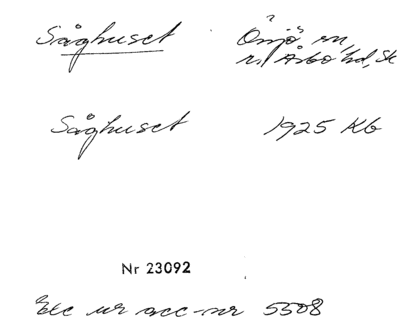 Såghuset Össjö sn,
n. Åsbo hd, Sk
Såghuset 1925 Kb
Nr 23092
Exc ur acc-nr 5508